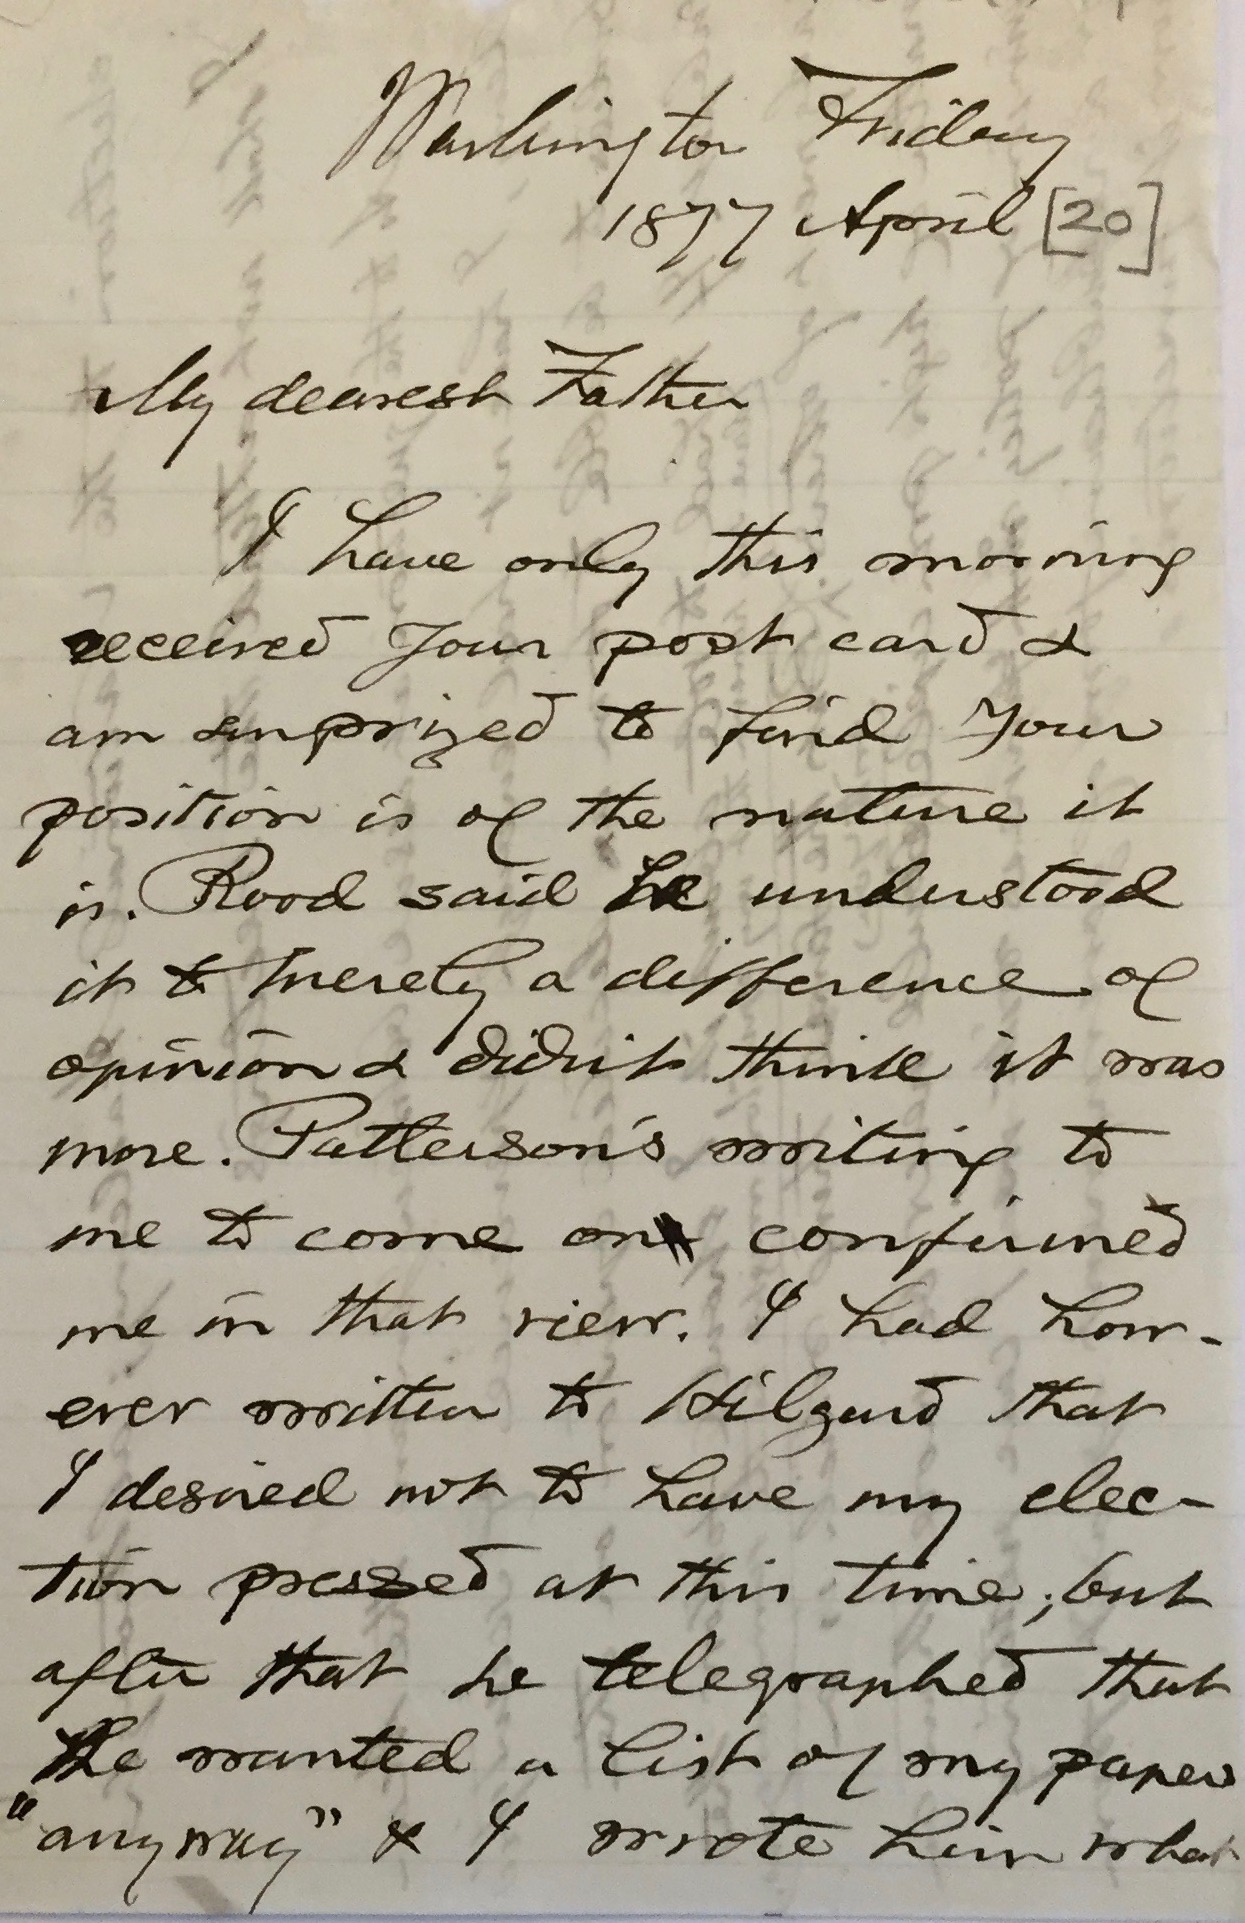 Washington Friday
1877 April [20]
My dearest Father
I have only this morning
received your post card &
am surprized to find your
position is of the nature it
is. Rood said he understood
it to merely a difference of
opinion & didn't think it was
more. Patterson's writing to
me to come on confirmed
me in that view. I had how-
ever written to Hilgard that
I desired not to have my elec-
tion pressed at this time; but
after that he telegraphed that
he wanted a list of my papers
"anyway" & I wrote him what